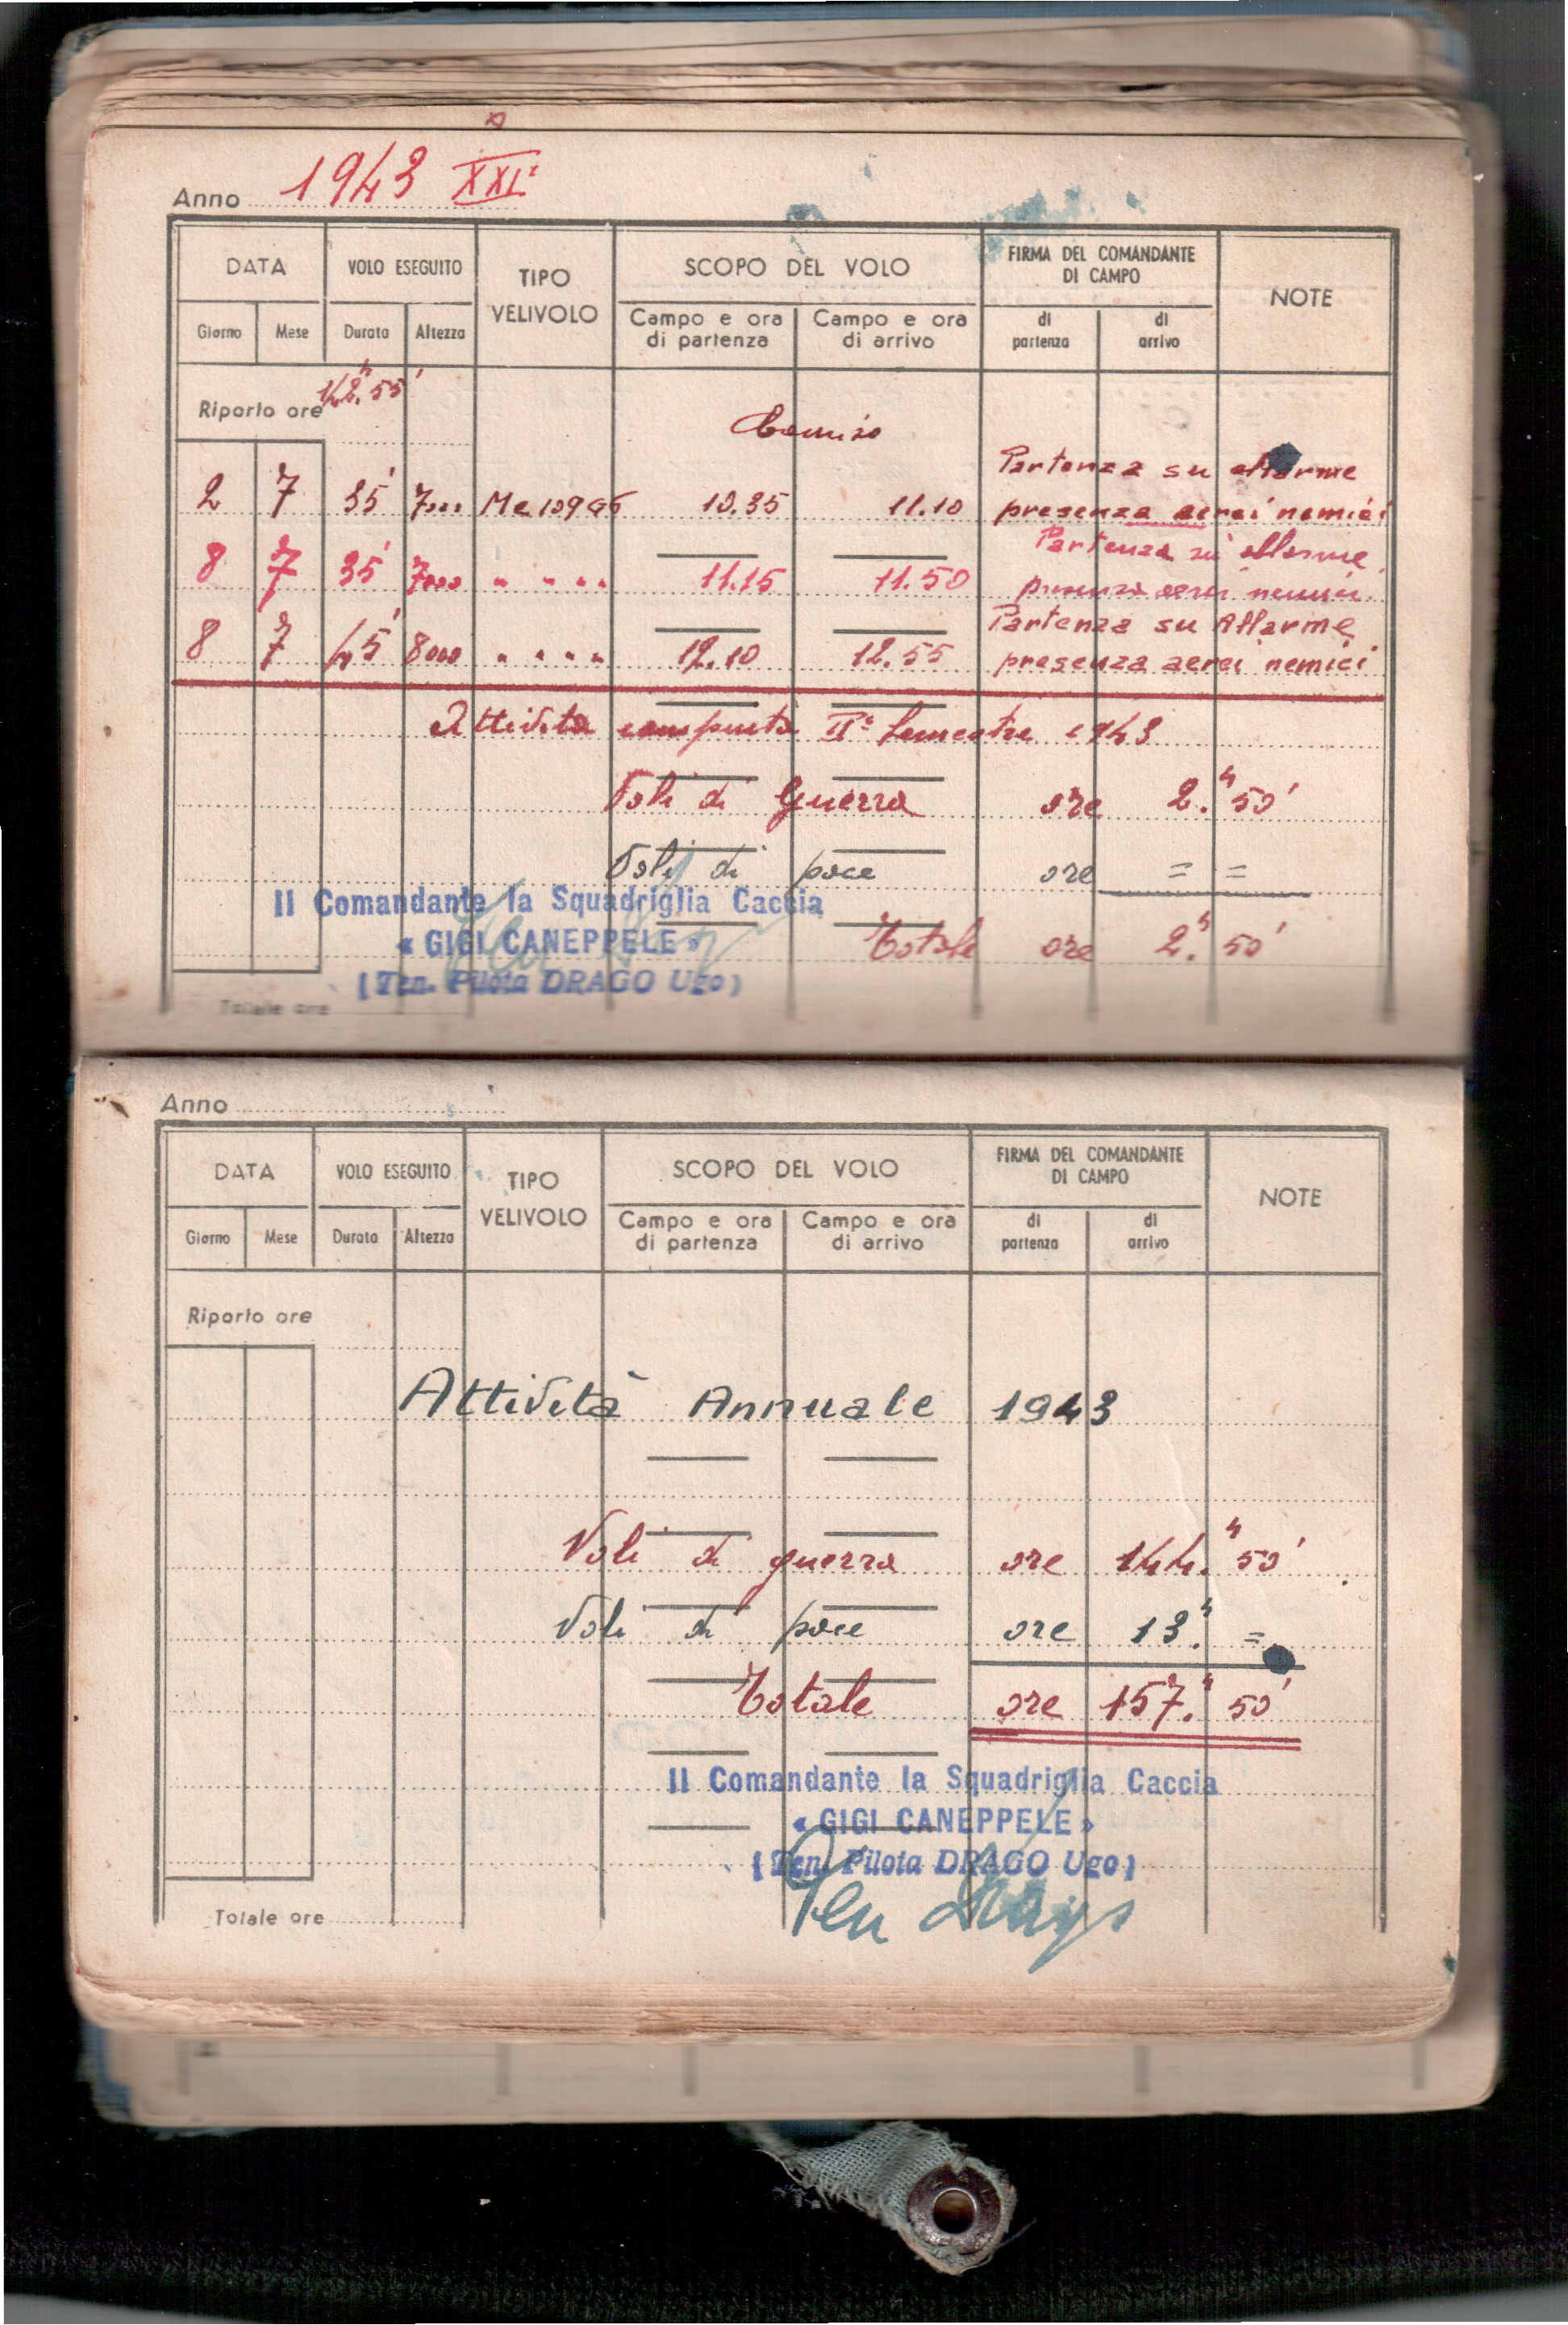 Anno 1943 XXI°
DATA VOLO ESEGUITO TIPO VELIVOLO SCOPO DEL VOLO FIRMA DEL COMANDANTE DI CAMPO NOTE
Giorno Mese Durata Altezza Campo e ora di partenza Campo e ora di arrivo di partenza di arrivo
Riporto ore 42.h 55'
Comiso
Partenza su allarme
2 7 35' 7000 Me 109 G6 10.35 11.10 presenza aerei nemici
Partenza su allarme
8 7 35' 7000 " " " " 11.15 11.50 presenza aerei nemici
Partenza su Allarme
8 7 45' 8000 " " " " 12.10 12.55 presenza aerei nemici
Attività compiuta II° Semestre 1943
Voli di Guerra ore 2.h 50'
Voli di pace ore = =
Il Comandante la Squadriglia Caccia
« GIGI CANEPPELE » Totale ore 2.h 50'
(Ten. Pilota DRAGO Ugo)
Totale ore
Anno
DATA VOLO ESEGUITO TIPO VELIVOLO SCOPO DEL VOLO FIRMA DEL COMANDANTE DI CAMPO NOTE
Giorno Mese Durata Altezza Campo e ora di partenza Campo e ora di arrivo di partenza di arrivo
Riporto ore
Attività Annuale 1943
Voli di guerra ore 144.h 50'
Voli di pace ore 13.h =
Totale ore 157.h 50'
Il Comandante la Squadriglia Caccia
« GIGI CANEPPELE »
(Ten. Pilota DRAGO Ugo)
Ten Drago
Totale ore